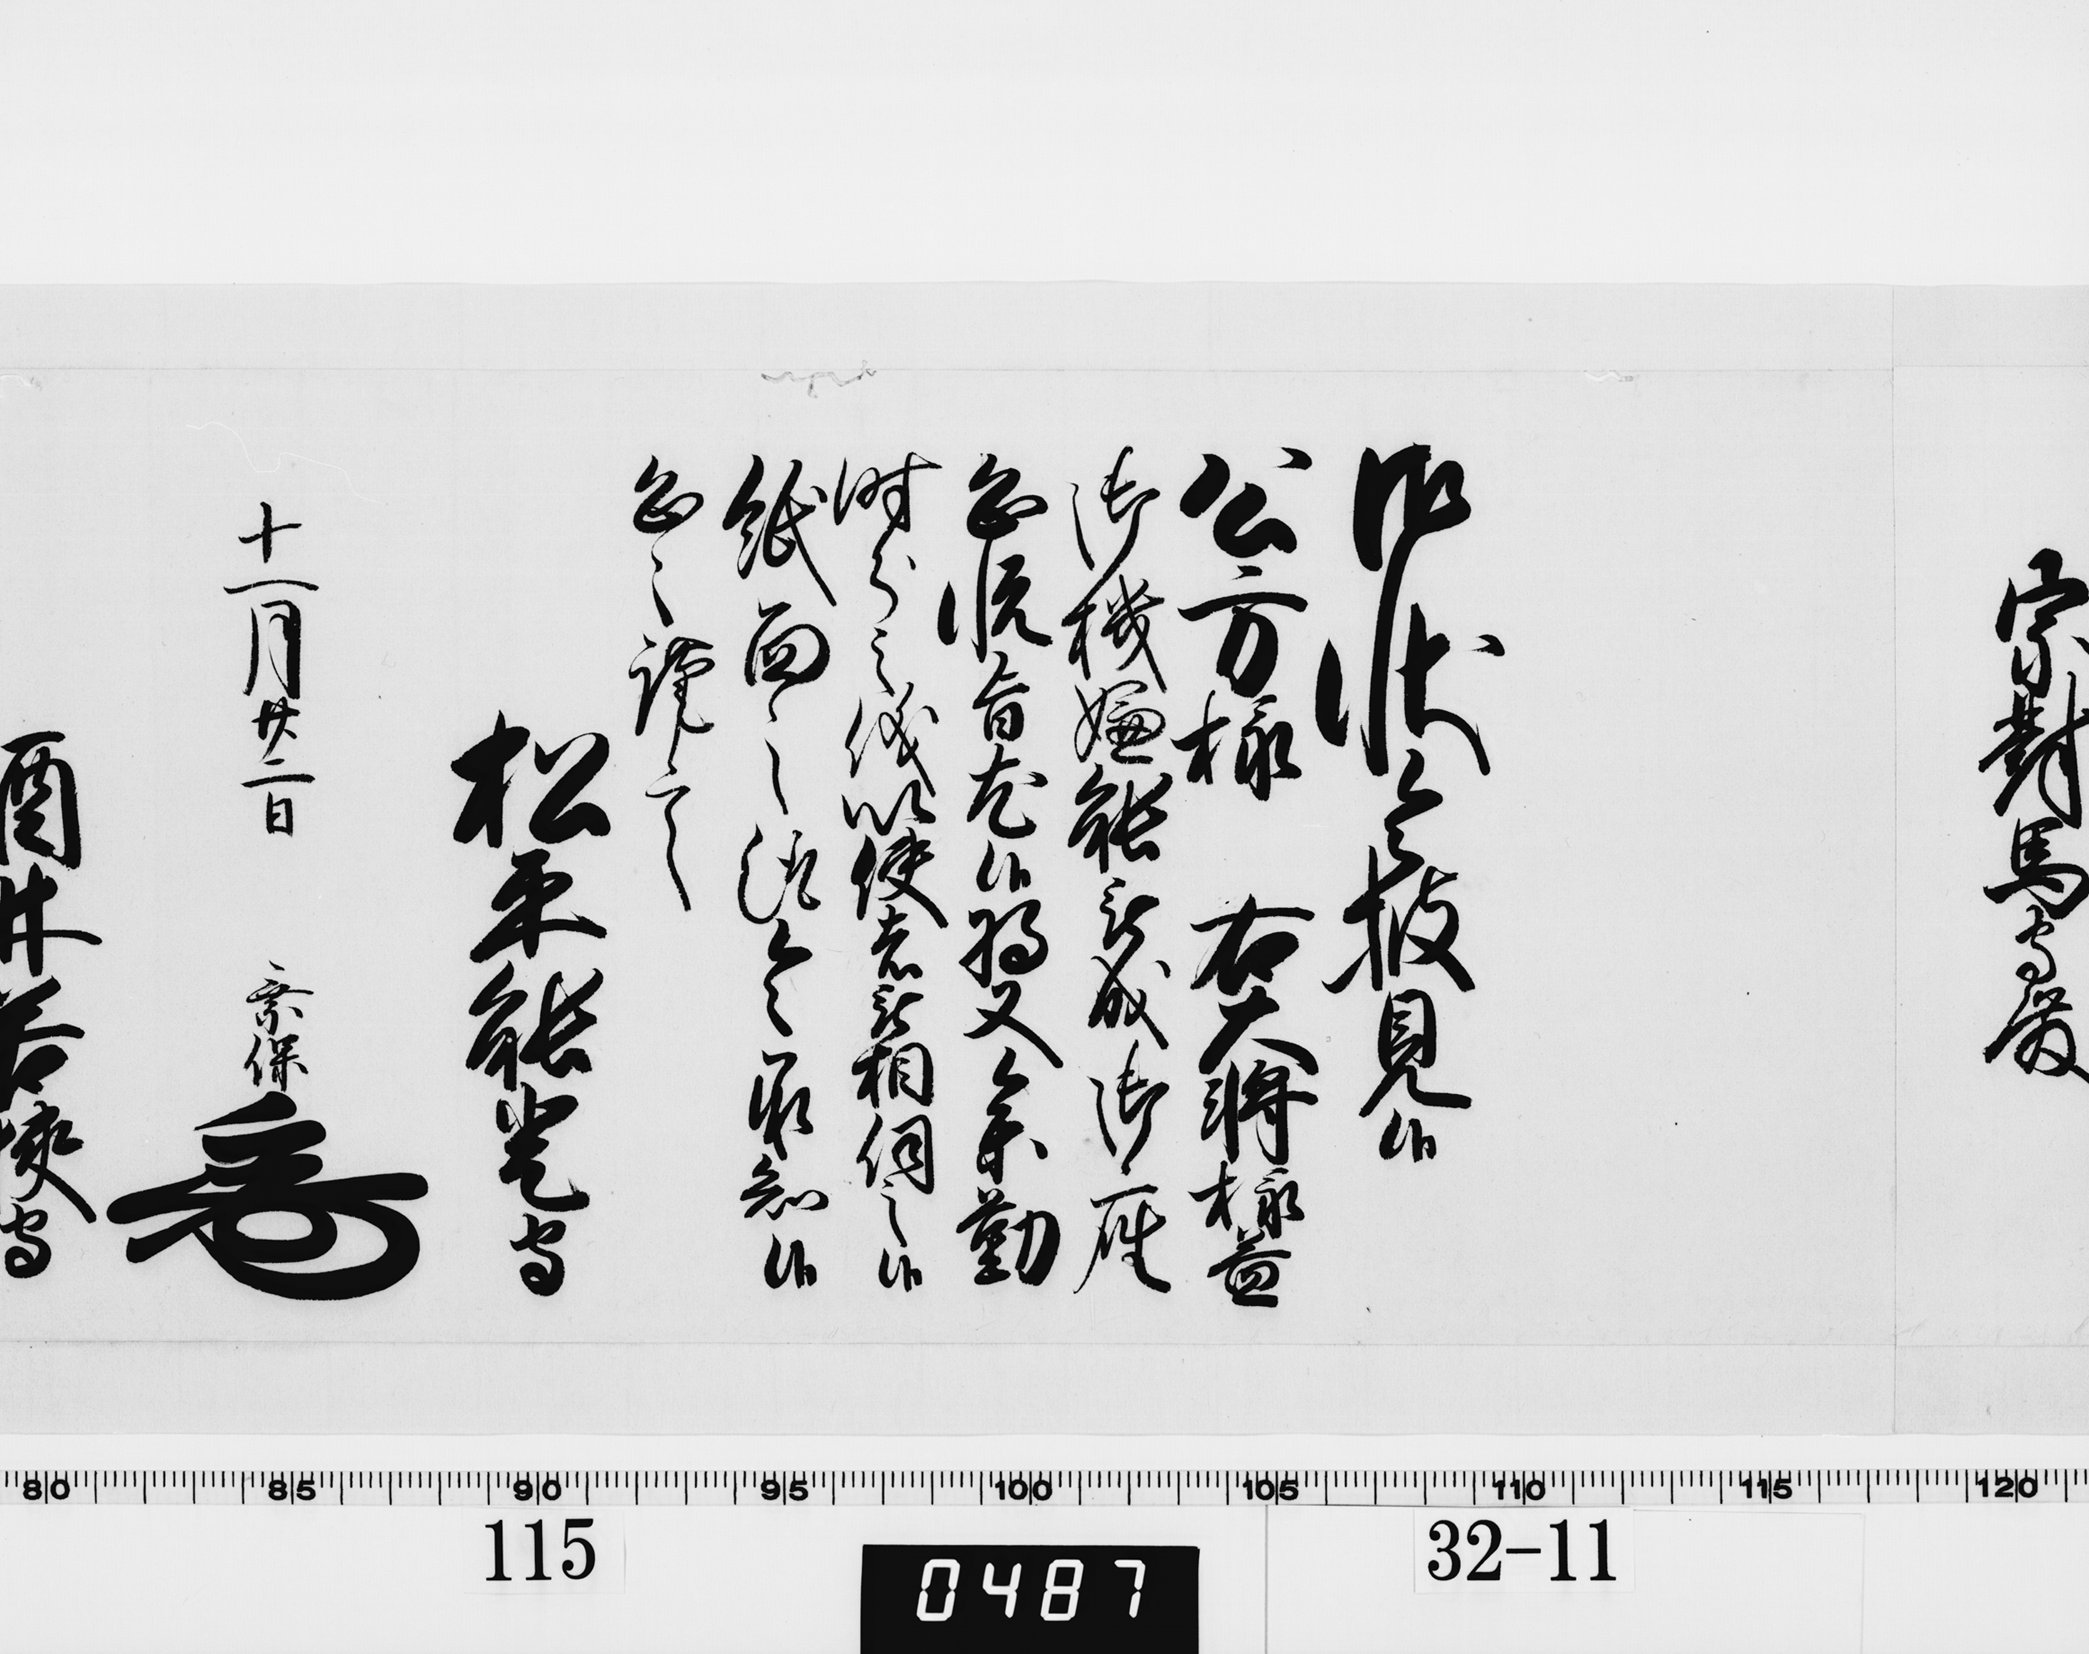 宗對馬守殿
御状令披見候
公方様 右大将様益
御機嫌能被成御座
恐悦旨尤候将又参勤
時分之儀以使者被相伺之候
紙面之趣令承知候
恐々謹言
松平能登守
十一月廿二日 乗保
酒井若狭守
80 85 90 95 100 105 110 115 120
115
0487
32-11